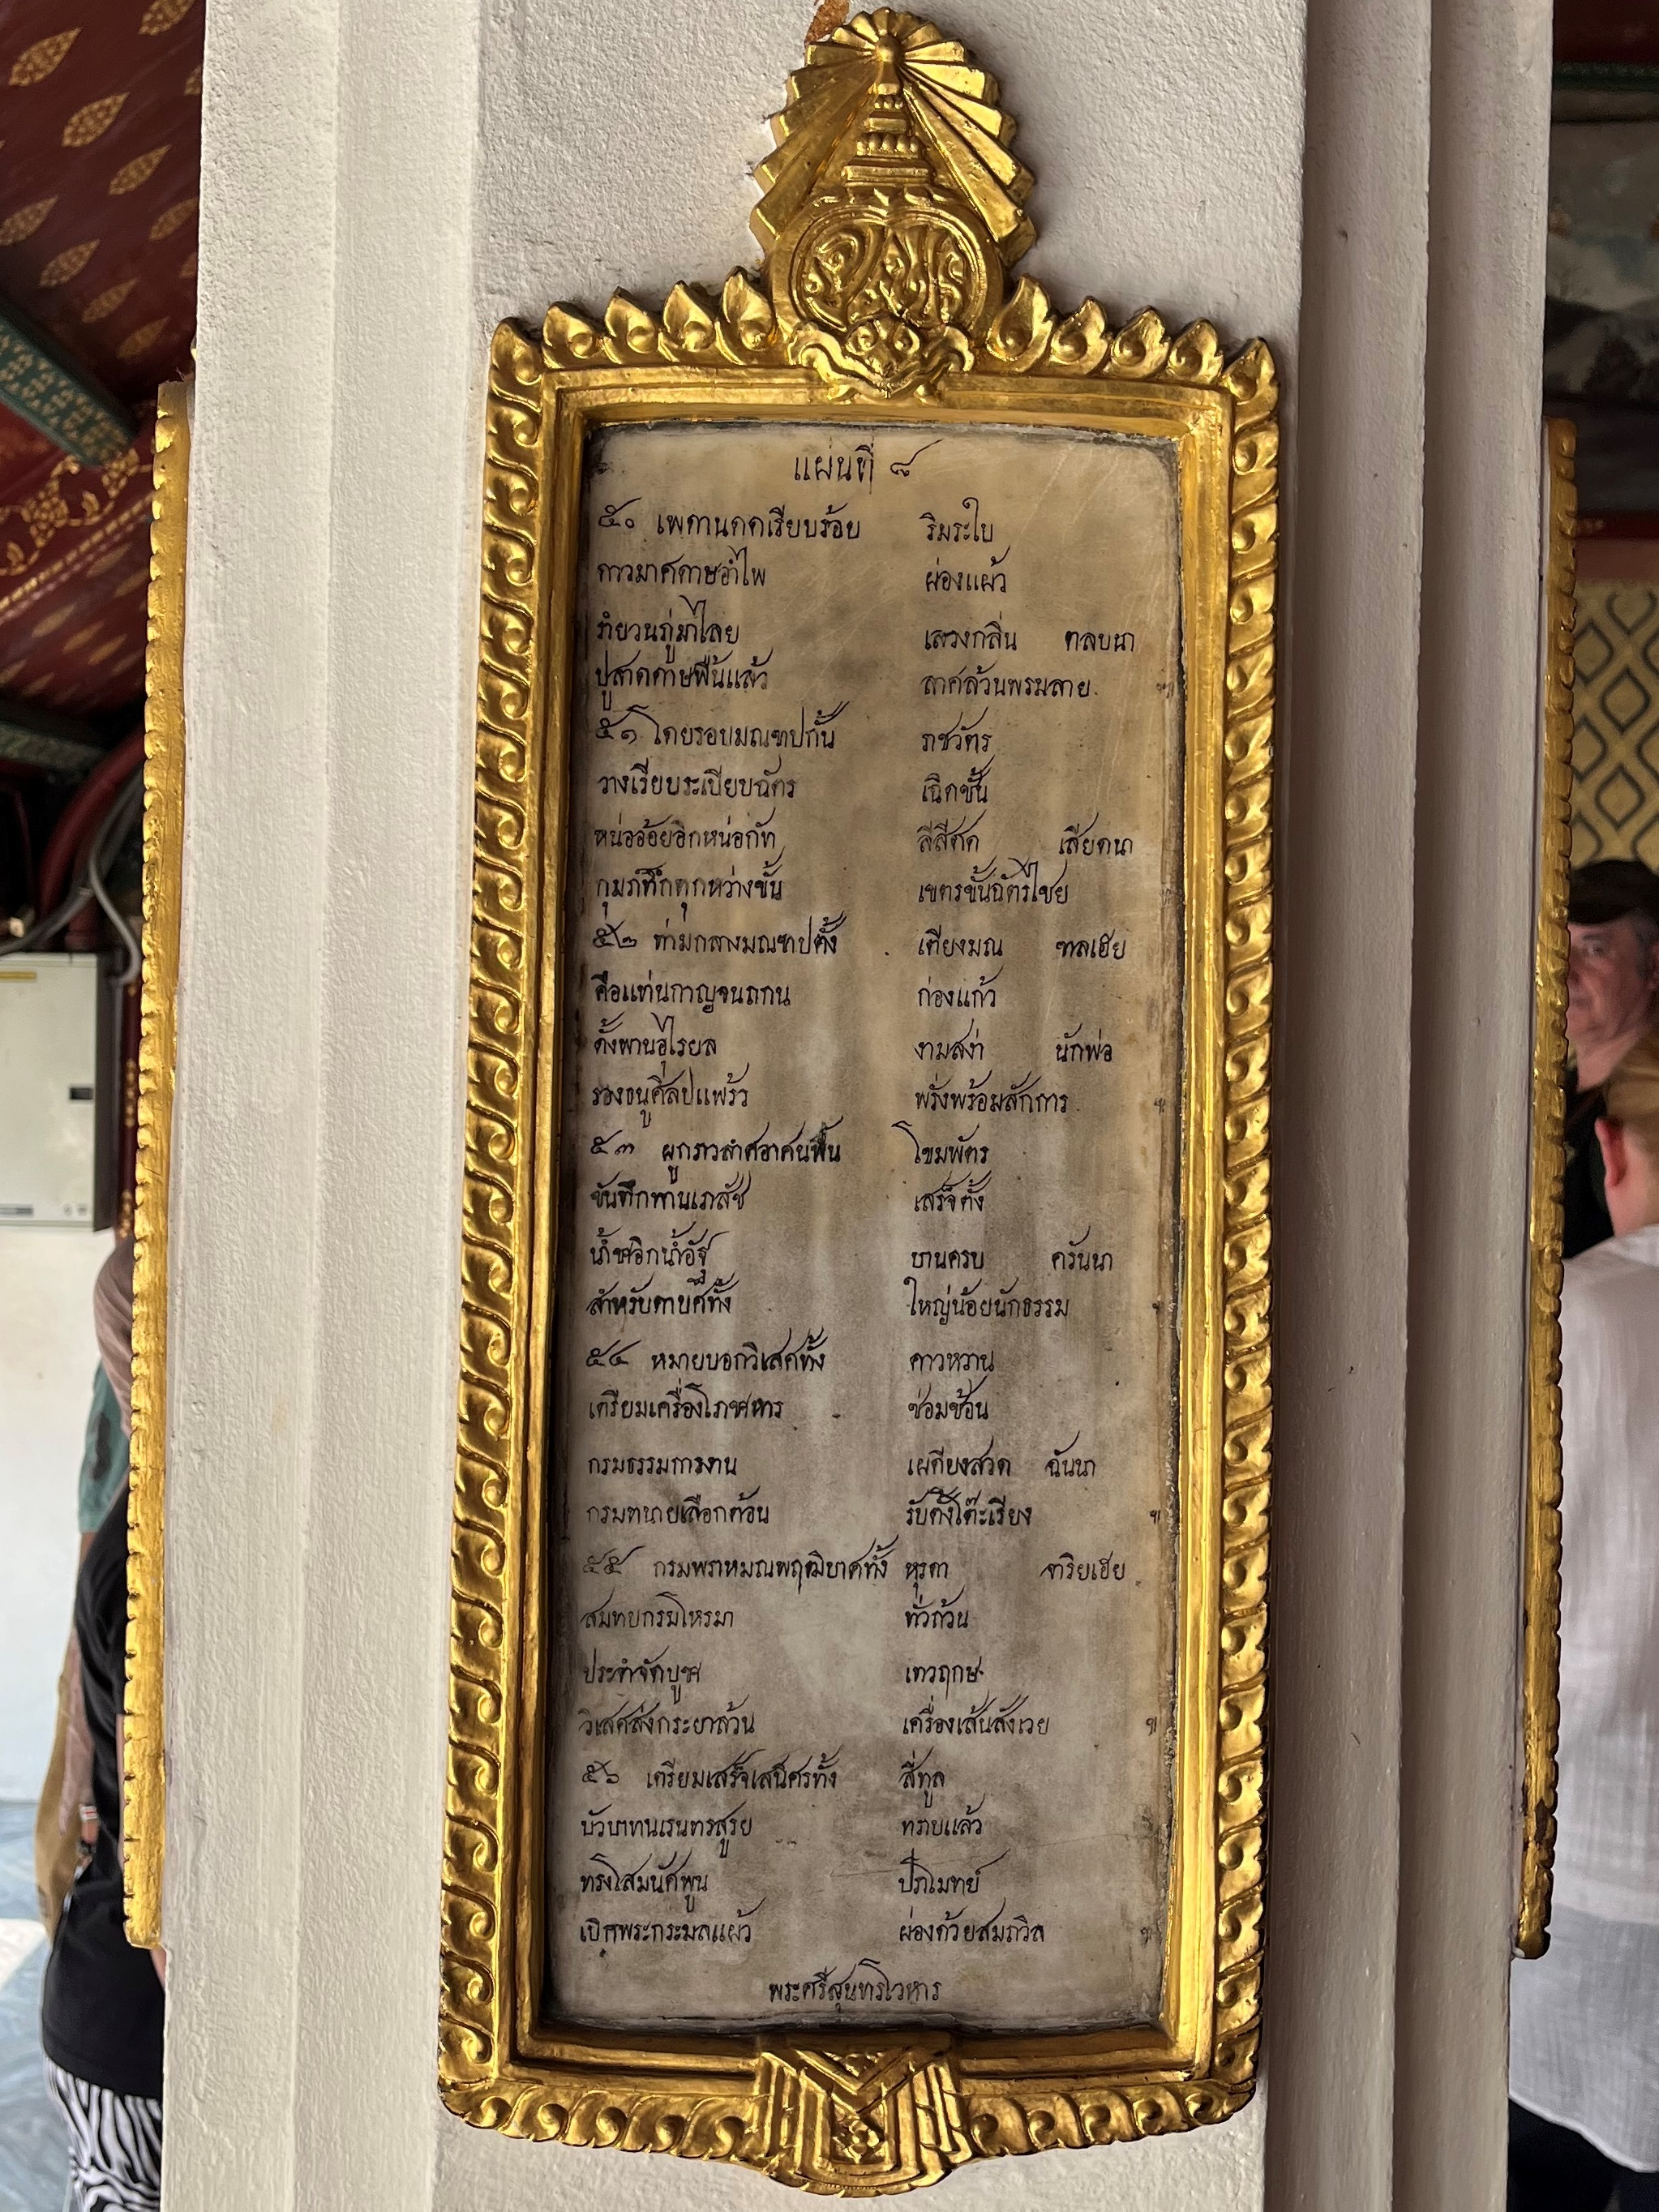 แผ่นที่ ๘
๕๐ เพดานดาดเรียบร้อย ริมระใบ
ดาวมาศดาษอำไพ ผ่องแผ้ว
ภู่มาไลย เสวงกลิ่น ตลบนา
ปูลาดดาษพื้นแล้ว ลาศล้วนพรมลาย
๕๑ โดยรอบมณฑปกั้น ราชวัตร
วางเรียบระเบียบฉัตร เฉิดชั้น
หน่ออ้อยอิกหน่อกัท ลีสีสด เสียดนา
กุมภ์ตึกตุกหว่างขั้น เขตรขั้นฉัตร์ไชย
๕๒ ท่ามกลางมณฑปตั้ง เตียงมณ ฑลเฮย
คือแท่นกาญจนถกน ก่องแก้ว
ตั้งพานอุไรยล งามสง่า นักพ่อ
รองธนูศิลป์แพร้ว พรั่งพร้อมสักการ
๕๓ ผูกราวลาศอาศน์พื้น โขมพัตร
ขันทึกพานเภสัช เสร็จตั้ง
น้ำชาอิกน้ำอัฐ บานครบ ครันนา
สำหรับดาบศทั้ง ใหญ่น้อยนักธรรม
๕๔ หมายบอกวิเสศทั้ง คาวหวาน
เตรียมเครื่องโภชาหาร ซ่อมช้อน
กรมธรรมการงาน เผดียงสวด ฉันนา
กรมทนายเลือกต้อน รับตั้งโต๊ะเรียง
๕๕ กรมพราหมณพฤฒิบาศทั้ง หุรดา จาริยเฮย
สมทบกรมโหรมา ทั่วถ้วน
ประจำจัดบูชา เทวฤกษ
วิเสศส่งกระยาล้วน เครื่องเส้นสังเวย
๕๖ เตรียมเสร็จเสนีศรทั้ง สี่ทูล
บัวบาทนเรนทรสูรย ทราบแล้ว
ทรงโสมนัศพูน ปราโมทย์
เบิกพระกระมลแผ้ว ผ่องด้วยสมถวิล
พระศรีสุนทรโวหาร